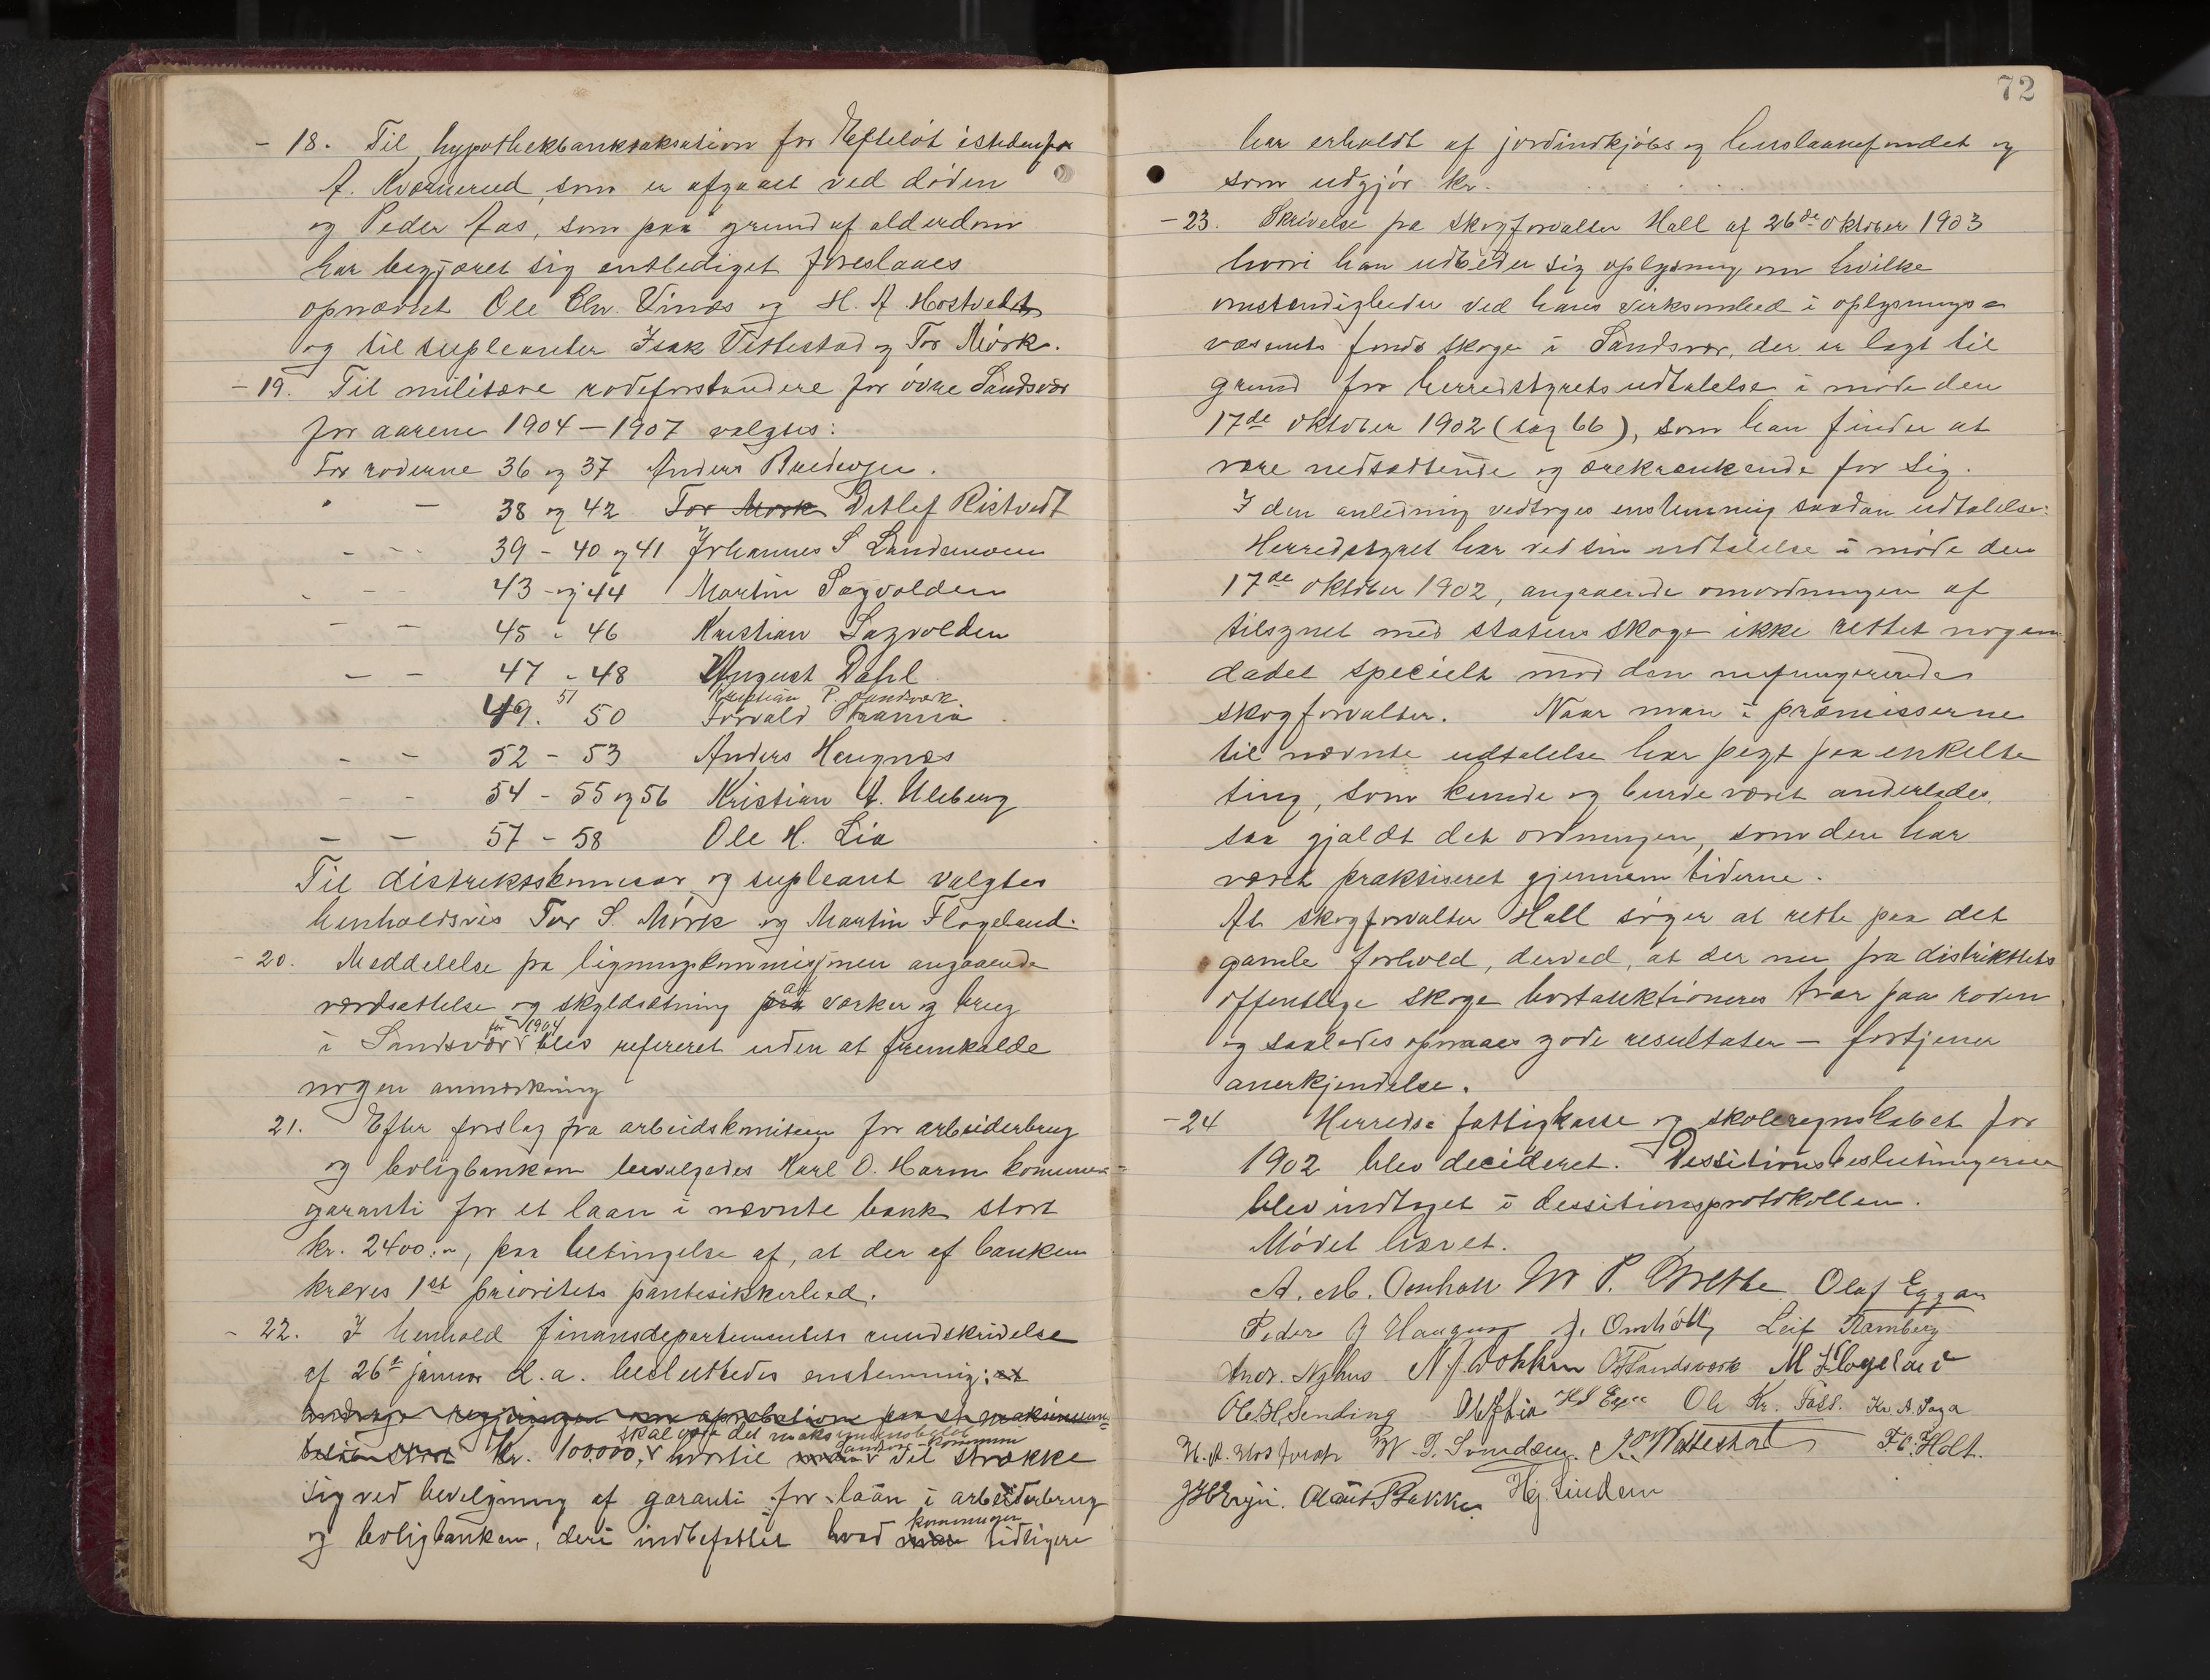 - 18. Til hypothekbanktaksation for Efteløt istedenfor
A. Kværnerud, som er afgaaet ved døden
og Peder Aas, som paa grund af alderdom
har begjæret sig entlediget foreslaaes
opnævnt Ole Chr. Vinæs og H. A. Hostvedt
og til supleanter Isak Vittestad og Tor Mørk.
- 19. Til militære rodeforstandere for øvre Sandsvær
for aarene 1904 - 1907 valgtes:
For roderne 36 og 37 Anders
" - 38 og 42 Tor Mørk Detlef Ristvedt
- - 39 - 40 og 41 Johannes S
- - 43 - og 44 Martin Sagvolden
- - 45 - 46 Kristian Sagvolden
- - 47 - 48 August Dahl
Kristian P. Landsverk
49. 51 50 Torvald
- - 52 - 53 Anders Haugnæs
- - 54 - 55 og 56 Kristian A. Uleberg
- - 57 - 58 Ole H. Lia
Til distriktskommisær og supleant valgtes
henholdsvis Tor S. Mørk og Martin Flogeland.
- 20. Meddelelse fra ligningskommisjonen angaaende
værdsættelse og skyldsætning paa af værker og brug
i Sandsvær for 1904 blev refereret uden at fremkalde
nogen anmerkning
21. Efter forslag fra arbeidskomiteen for arbeiderbrug
og boligbanken bevilgedes Karl O. Harm kommune-
garanti for et laan i nævnte bank stort
kr. 2400:-, paa betingelse af, at der af banken
kræves 1st prioritets pantesikkerhed.
- 22. I henhold finansdepartementets rundskrivelse
af 26de januar d.a. besluttedes enstemmig: at
andrage regjeringen om aprobation paa et maksimum-
skal være det maksimumsbeløb
beløb stort kr. 100.000, hvortil Sandsvær kommune vil strække
sig ved bevilgning af garanti for laan i arbeiderbrug
og boligbanken, deri indbefattet hvad man kommunen tidligere
72
har erholdt af jordindkjøbs og huslaanefondet og
som udgjør kr. . . . . .
- 23. Skrivelse fra skogforvalter Hall af 26de oktober 1903
hvori han udbeder sig oplysning om hvilke
omstændigheder ved hans virksomhed i oplysnings-
væsenets fonds skoge i Sandsvær, der er lagt til
grund for herredstyrets udtalelse i møde den
17de oktober 1902 (sag 66), som han finder at
være nedsættende og ærekrænkende for sig.
I den anledning vedtoges enstemmig saadan udtalelse:
Herredstyret har ved sin udtalelse i møde den
17de oktober 1902, angaaende omordningen af
tilsynet med statens skoge ikke rettet nogen
dadel specielt mod den nufungerende
skogforvalter. Naar man i præmisserne
til nævnte udtalelse har pegt paa enkelte
ting, som kunde og burde været anderledes,
saa gjaldt det ordningen, som den har
været praktiseret gjennem tiderne.
At skogforvalter Hall søger at rette paa det
gamle forhold, derved, at der nu fra distriktets
offentlige skoge bortauktioneres trær paa roden
og saaledes opnaaes gode resultater - fortjener
anerkjendelse.
- 24 Herreds fattigkasse og skoleregnskabet for
1902 blev decideret. Dessitionsbeslutningerne
blev indtaget i dessitionsprotokollen.
Mødet hævet.
A. M. Omholt W P. Olaf Eggar
Peder J Haugnæs J. Omholt, Leif Ramberg
Andr. Nyhus N. J. Wohken Landsværk M Flogeland
Ole H Sending Ole H Lia Ole Kr. Foss. Kr. A. Saga
H. A. Hostvedt W. S. J. Wittestad F. C. Holt.
Bakke Hej. Lindem